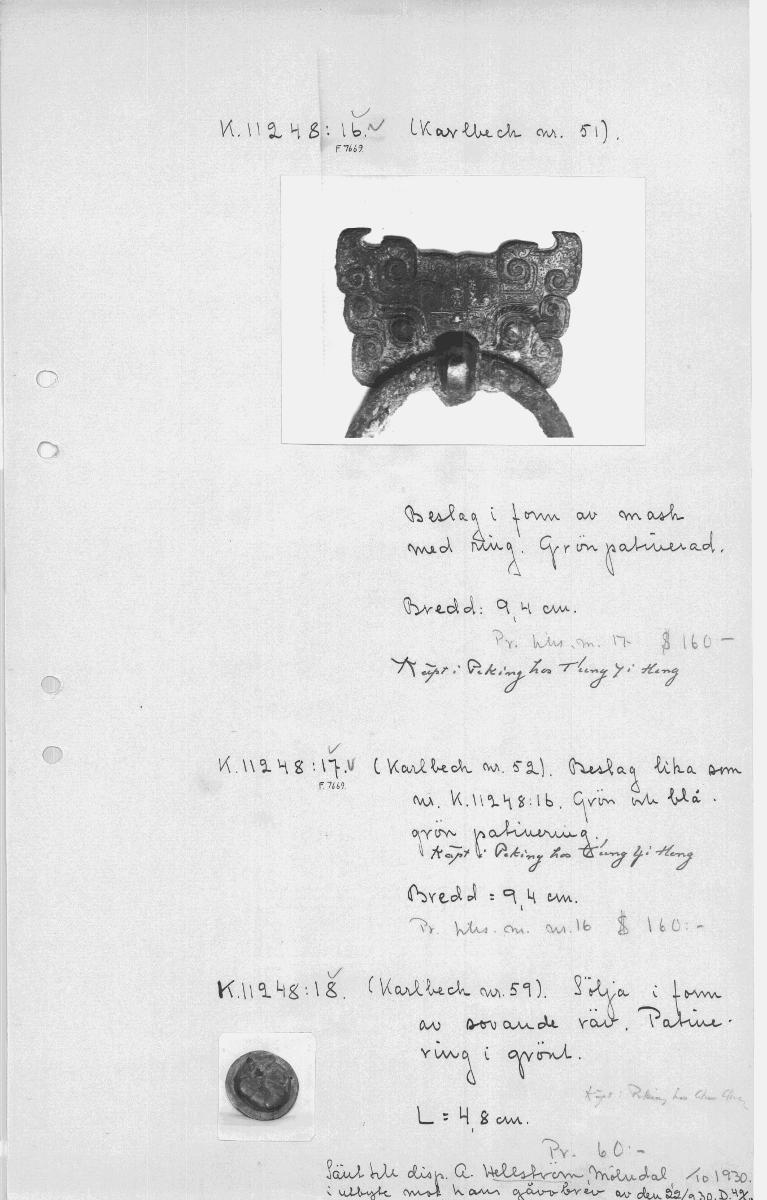 K.11248:16. (Karlbeck nr. 51).
F. 7669.
Beslag i form av mask
med ring. Grön patinerad.
Bredd: 9,4 cm.
Pr. tills. m. 17 $ 160 –
Köpt i Peking hos T'ung Yi Heng
K.11248:17. (Karlbeck nr. 52). Beslag lika som
F. 7669.
nr. K.11248:16. Grön och blå-
grön patinering.
Köpt i Peking hos T'ung Yi Heng
Bredd = 9,4 cm.
Pr. tills. m. nr. 16 $ 160:–
K.11248:18. (Karlbeck nr. 59). Sölja i form
av sovande räv. Patine-
ring i grönt.
Köpt i Peking hos
L = 4,8 cm.
Pr. 60:–
Sänt till disp. A. Hellström, Mölndal, /10 1930.
i utbyte mot hans gåvobrev av den 22/9 30. D. 42.